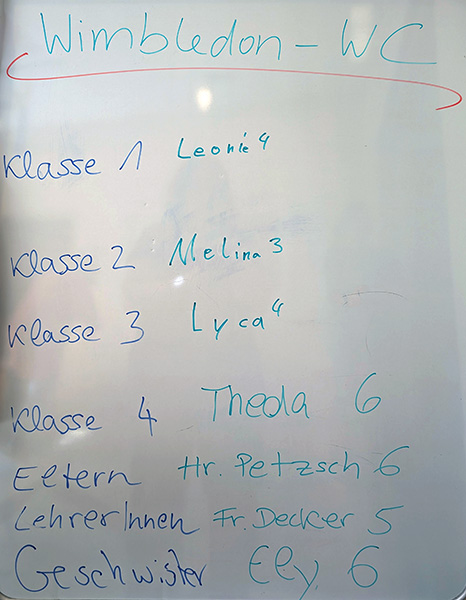 Wimbledon - WC
Klasse 1 Leonie 4
Klasse 2 Melina 3
Klasse 3 Lyca 4
Klasse 4 Theda 6
Eltern Hr. Petzsch 6
LehrerInnen Fr. Decker 5
Geschwister Elly 6